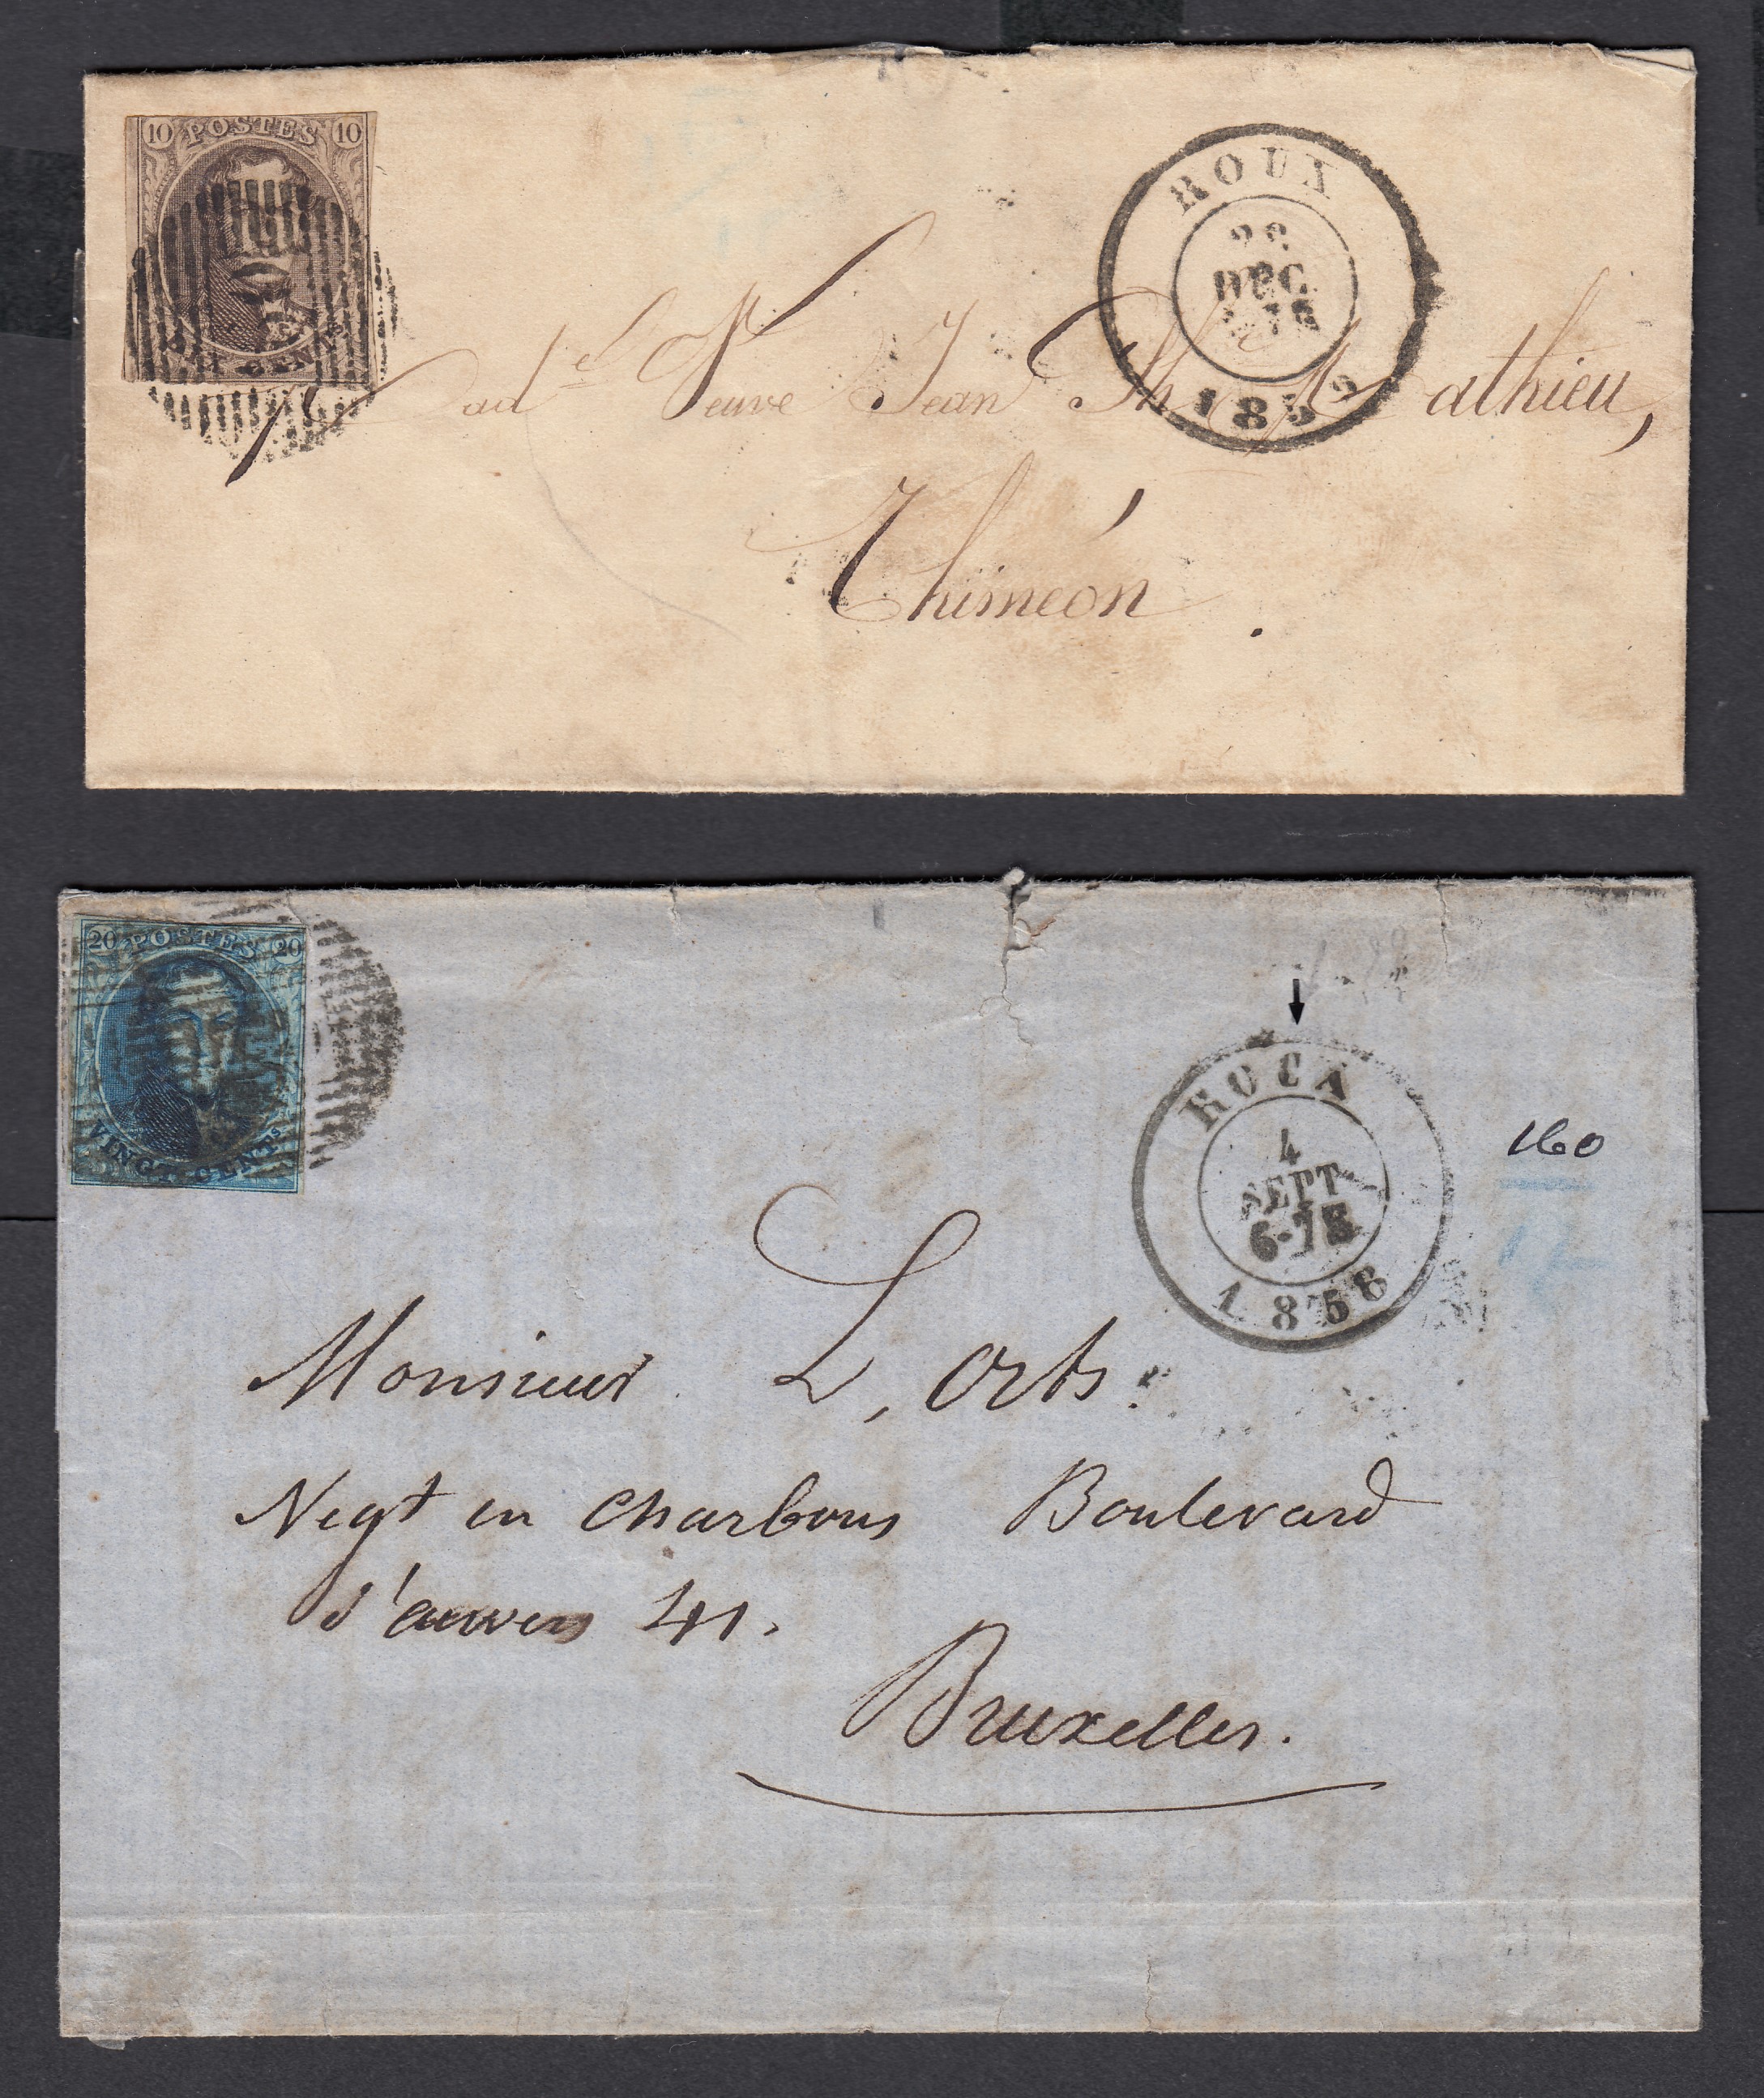 10 POSTES 10
CENTS
ROUX
DEC
185
Mad.e Veuve Jean Th Mathieu,
Thiméon
20 POSTES 20
VINGT CENTS
ROUX
4
SEPT
6-7
1858
160
Monsieur L. Orts
Negt en Charbons Boulevard
d'anvers 41.
Bruxelles.